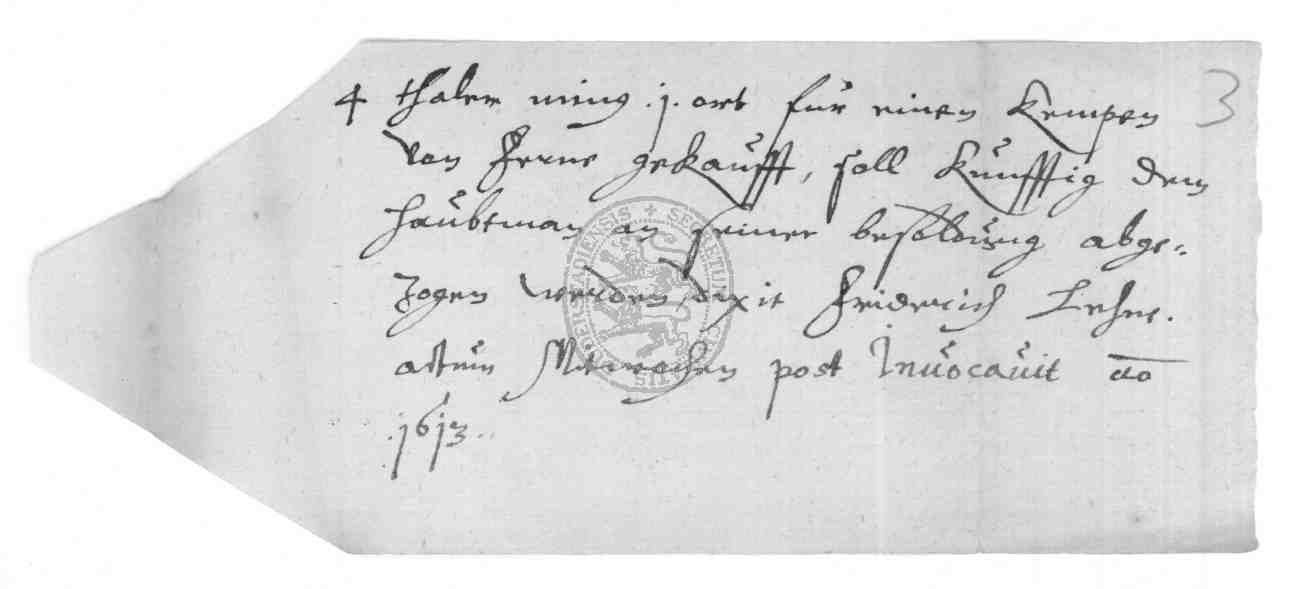 4 thaler minq .j. ort für einen Kempen 3
von Ferne gekaufft, soll Künfftig dem
haubtman an seiner besoldung abge=
zogen werden, dixit Friderich Lehne.
actum Mitwochen post Invocavit ao
.1613..